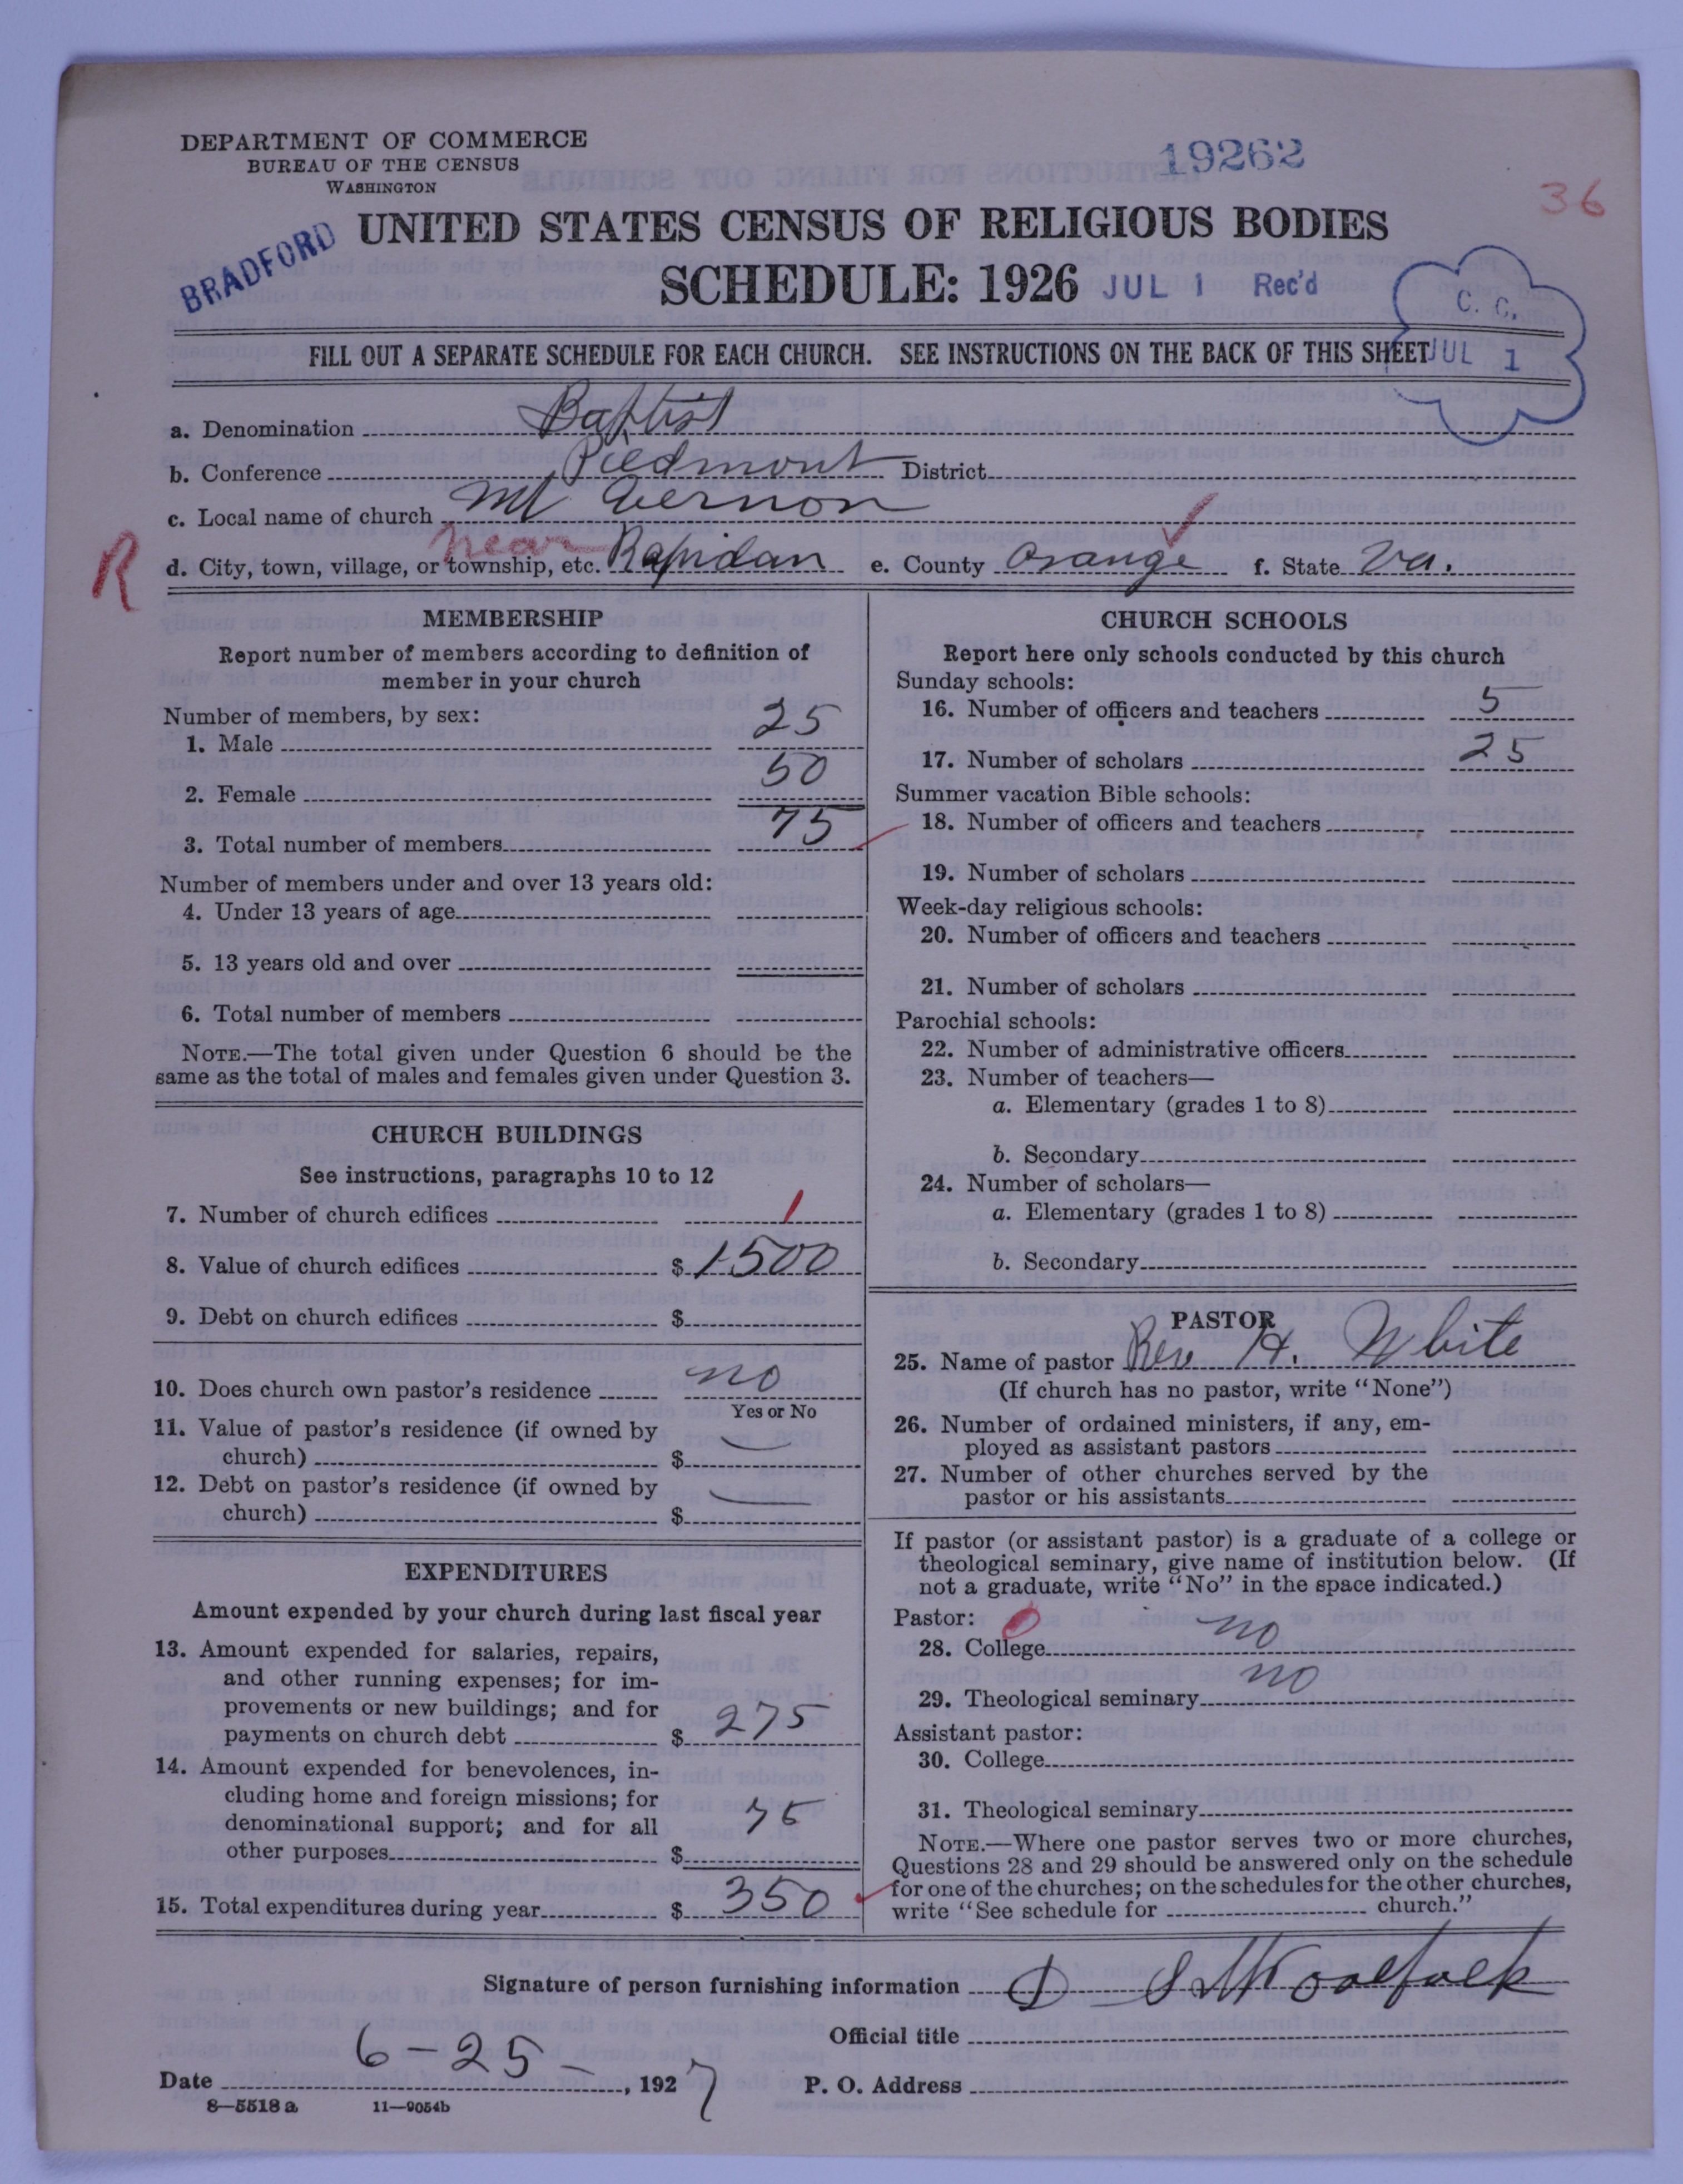 DEPARTMENT OF COMMERCE
BUREAU OF THE CENSUS
WASHINGTON
19262
36
BRADFORD
UNITED STATES CENSUS OF RELIGIOUS BODIES
SCHEDULE: 1926 JUL 1 Rec'd
C. C.
JUL 1
FILL OUT A SEPARATE SCHEDULE FOR EACH CHURCH. SEE INSTRUCTIONS ON THE BACK OF THIS SHEET
a. Denomination Baptist
b. Conference Piedmont District
c. Local name of church Mt Vernon
R
d. City, town, village, or township, etc. near Rapidan e. County Orange f. State Va.
MEMBERSHIP
Report number of members according to definition of
member in your church
Number of members, by sex:
1. Male 25
2. Female 50
3. Total number of members 75
Number of members under and over 13 years old:
4. Under 13 years of age
5. 13 years old and over
6. Total number of members
NOTE.—The total given under Question 6 should be the
same as the total of males and females given under Question 3.
CHURCH BUILDINGS
See instructions, paragraphs 10 to 12
7. Number of church edifices 1
8. Value of church edifices $ 1500
9. Debt on church edifices $
10. Does church own pastor's residence no
Yes or No
11. Value of pastor's residence (if owned by
church) $
12. Debt on pastor's residence (if owned by
church) $
EXPENDITURES
Amount expended by your church during last fiscal year
13. Amount expended for salaries, repairs,
and other running expenses; for im-
provements or new buildings; and for
payments on church debt $ 275
14. Amount expended for benevolences, in-
cluding home and foreign missions; for
denominational support; and for all
other purposes $ 75
15. Total expenditures during year $ 350
CHURCH SCHOOLS
Report here only schools conducted by this church
Sunday schools:
16. Number of officers and teachers 5
17. Number of scholars 25
Summer vacation Bible schools:
18. Number of officers and teachers
19. Number of scholars
Week-day religious schools:
20. Number of officers and teachers
21. Number of scholars
Parochial schools:
22. Number of administrative officers
23. Number of teachers—
a. Elementary (grades 1 to 8)
b. Secondary
24. Number of scholars—
a. Elementary (grades 1 to 8)
b. Secondary
PASTOR
25. Name of pastor Rev H. White
(If church has no pastor, write "None")
26. Number of ordained ministers, if any, em-
ployed as assistant pastors
27. Number of other churches served by the
pastor or his assistants
If pastor (or assistant pastor) is a graduate of a college or
theological seminary, give name of institution below. (If
not a graduate, write "No" in the space indicated.)
Pastor: 0
28. College no
29. Theological seminary no
Assistant pastor:
30. College
31. Theological seminary
NOTE.—Where one pastor serves two or more churches,
Questions 28 and 29 should be answered only on the schedule
for one of the churches; on the schedules for the other churches,
write "See schedule for church."
Signature of person furnishing information Woolfolk
Official title
Date 6-25-, 1927 P. O. Address
8—5518 a 11—9054b